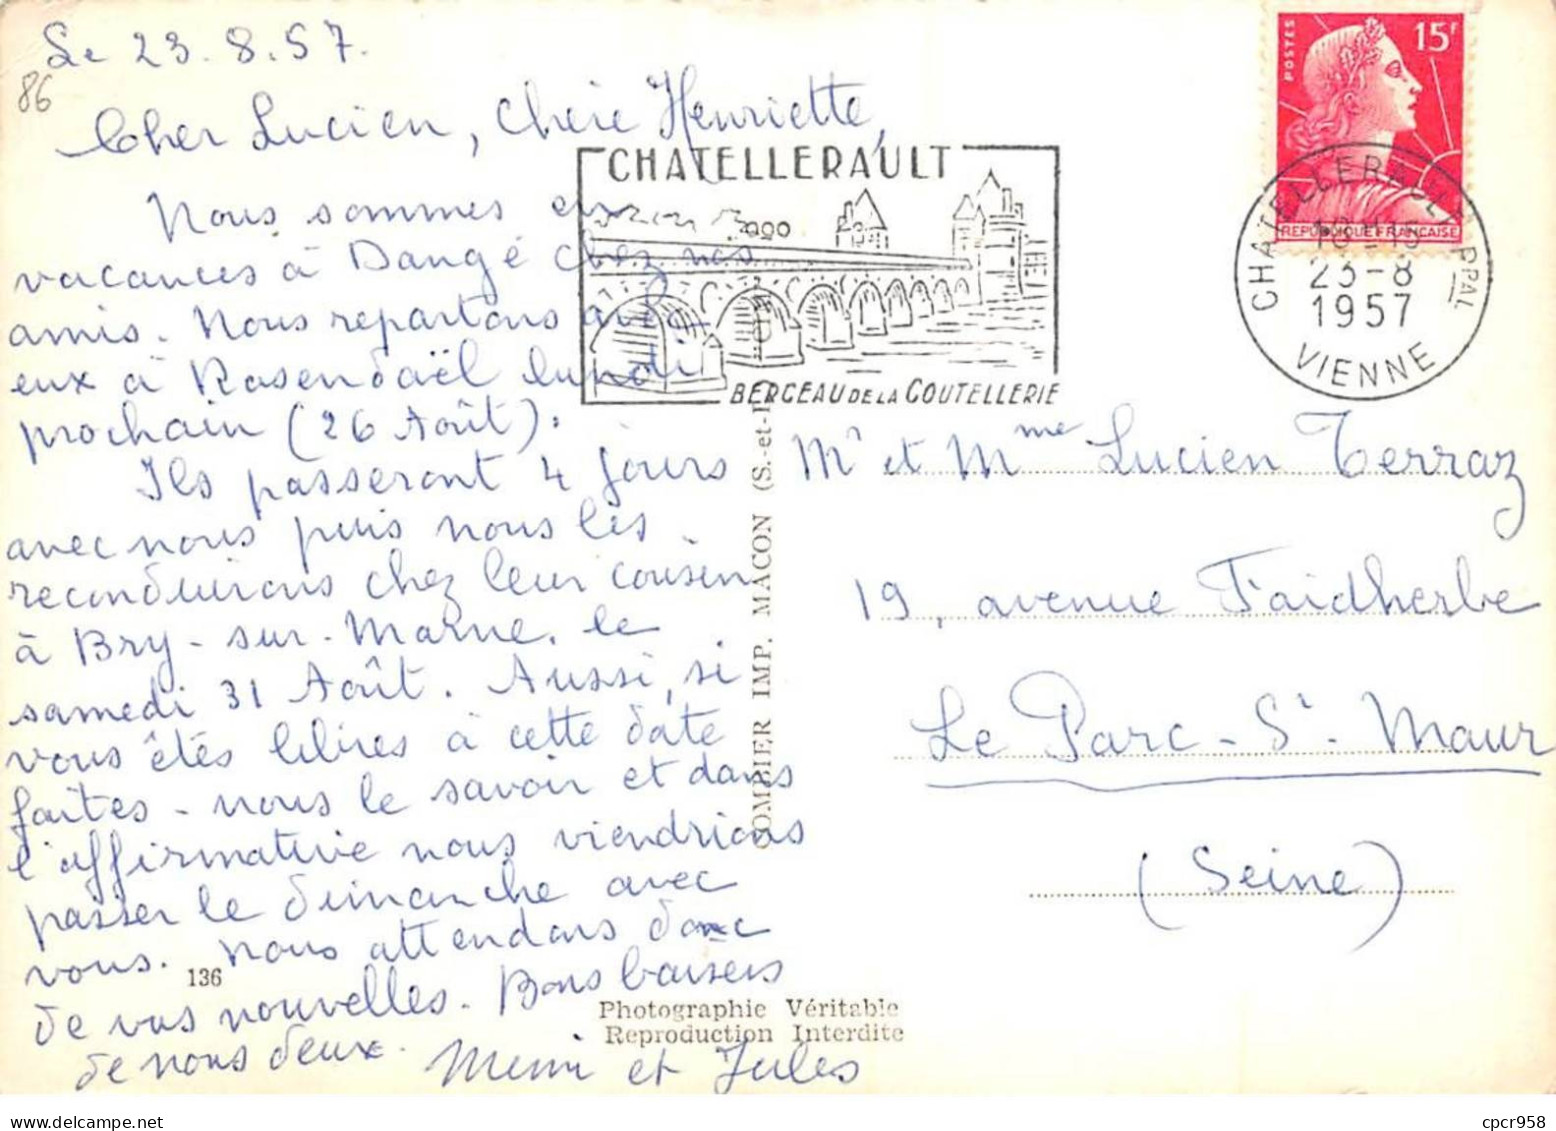 Le 23.8.57.
86
Cher Lucien, Chère Henriette,
Nous sommes en
vacances à Dangé chez nos
amis. Nous repartons avec
eux à Rosendaël lundi
prochain (26 Août).
Ils passeront 4 jours
avec nous puis nous les
reconduirons chez leur cousin
à Bry-sur-Marne, le
samedi 31 Août. Aussi, si
vous êtes libres à cette date
faites-nous le savoir et dans
l'affirmative nous viendrions
passer le dimanche avec
vous. Nous attendons donc
de vos nouvelles. Bons baisers
de nous deux. Mimi et Jules
136
CHATELLERAULT
BERCEAU DE LA COUTELLERIE
COMBIER IMP. MACON (S.-et-L.)
Photographie Véritable
Reproduction Interdite
POSTES
15F
REPUBLIQUE FRANÇAISE
CHATELLERAULT PPAL
23-8
1957
VIENNE
Mr et Mme Lucien Terraz
19, avenue Faidherbe
Le Parc-St-Maur
(Seine)
www.delcampe.net
cpcr958